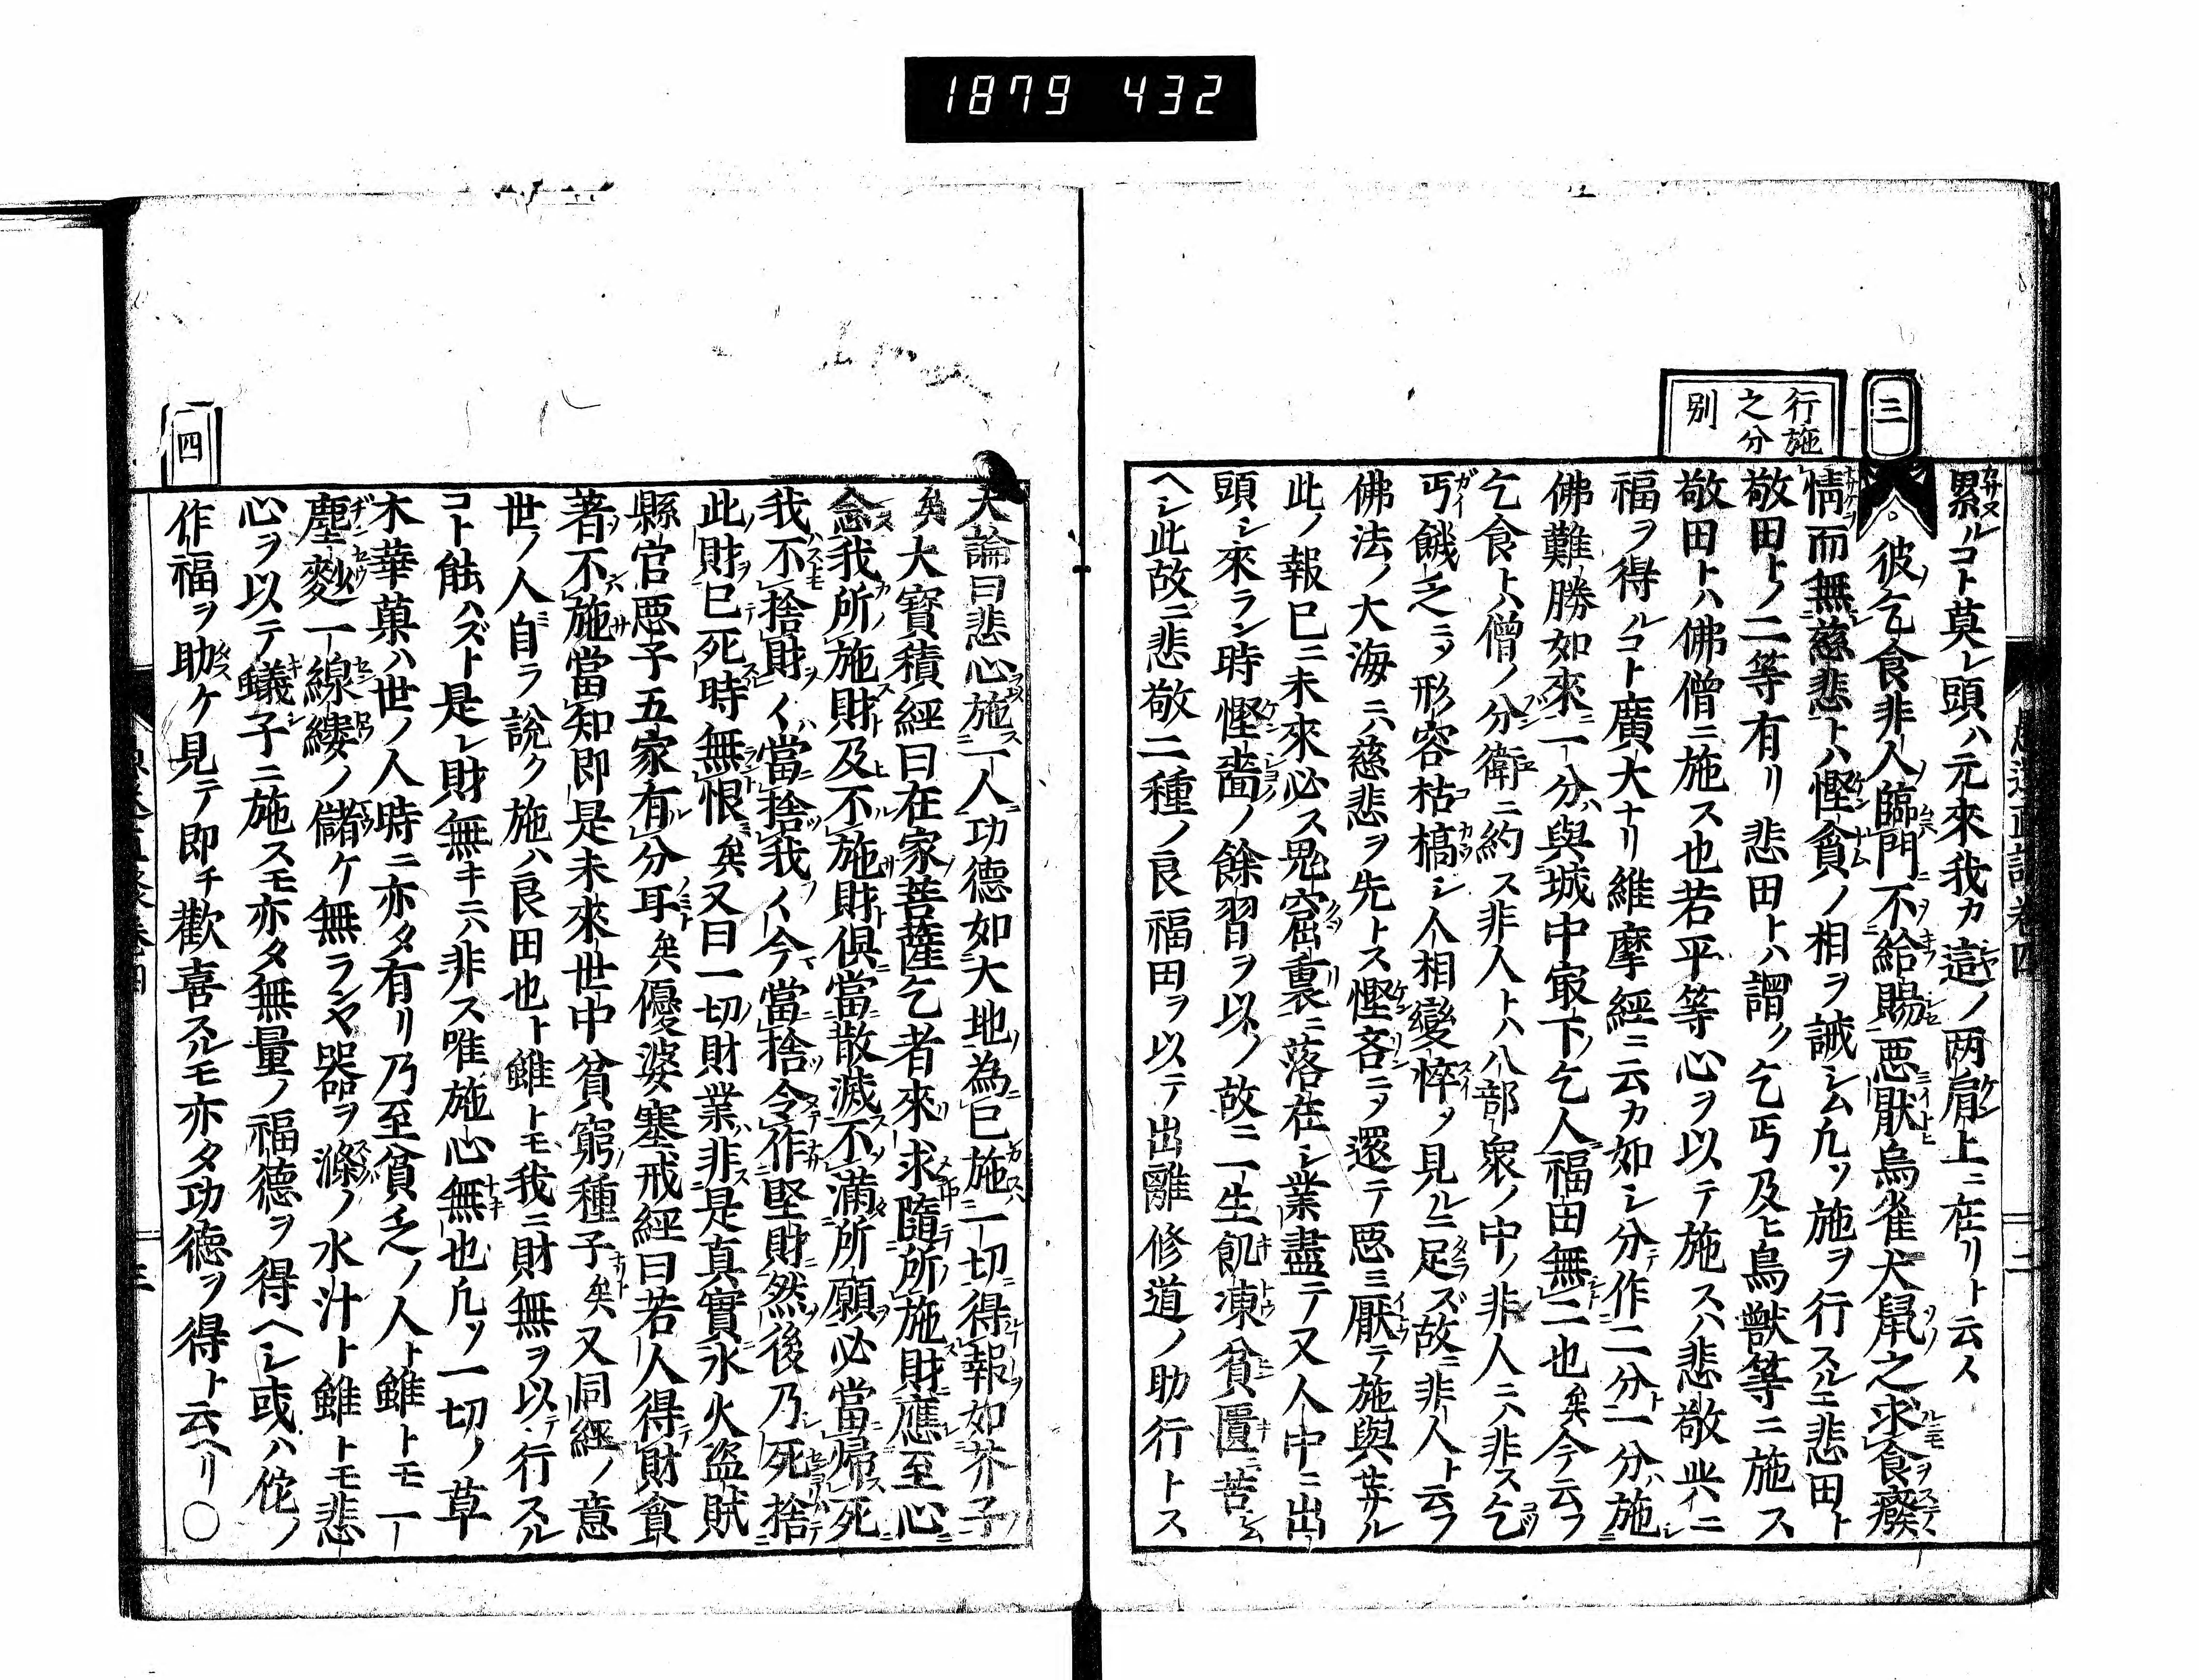 1879 432
三
行施
之分
別
累ルコト莫レ頭ハ元來我カ這ノ两肩上ニ在リト云人
彼乞食非人臨門不給賜惡厭烏雀犬鼠之求食癈
情而無慈悲トハ慳貪ノ相ヲ誡シム凢ソ施ヲ行スルニ悲田ト
敬田トノ二等有リ悲田トハ謂ク乞丐及ヒ鳥獸等ニ施ス
敬田トハ佛僧ニ施ス也若平等心ヲ以テ施スハ悲敬共ニ
福ヲ得ルコト廣大ナリ維摩經ニ云カ如シ分作二分一分施
佛難勝如來一分與城中㝡下乞人福田無二也矣今云フ
乞食トハ僧ノ分衛ニ約ス非人トハ八部衆ノ中ノ非人ニハ非ス乞
丐餓乏ニソ形容枯槁シ人相變悴タ見ルニ足ズ故ニ非人ト云フ
佛法ノ大海ニハ慈悲ヲ先トス慳吝ニソ還テ惡ミ厭テ施與せサル
此ノ報已ニ未來必ス鬼窟裏ニ落在シ業盡テ又人中ニ出
頭シ來ラン時慳嗇ノ餘習ヲ以ノ故ニ一生飢凍貧匱ニ苦ム
ヘシ此故ニ悲敬二種ノ良福田ヲ以テ出離修道ノ助行トス
大論曰悲心施一人功德如大地為已施一切得報如芥子
矣大寶積經曰在家菩薩乞者來求隨所施財應至心
念我所施財及不施財俱當散滅不滿所願必當歸死
我不捨財財當捨我我今當捨令作堅財然後乃死捨
此財已死時無恨矣又曰一切財業非是真實水火盜賊
縣官惡子五家有分耳矣優婆塞戒經曰若人得財貪
著不施當知即是未來世中貧窮種子矣又同經ノ意
世ノ人自ラ說ク施ハ良田也ト雖トモ我ニ財無ヲ以テ行スル
コト能ハズト是レ財無キニハ非ス唯施心無也凢ソ一切ノ草
木華菓ハ世ノ人時ニ亦タ有リ乃至貧乏ノ人ト雖トモ一
塵麨一線縷ノ儲ケ無ランヤ器ヲ滌ノ水汁ト雖トモ悲
心ヲ以テ蟻子ニ施スモ亦タ無量ノ福德ヲ得ヘシ或ハ佗ノ
作福ヲ助ケ見テ即チ歡喜スルモ亦タ功德ヲ得ト云ヘリ○
四